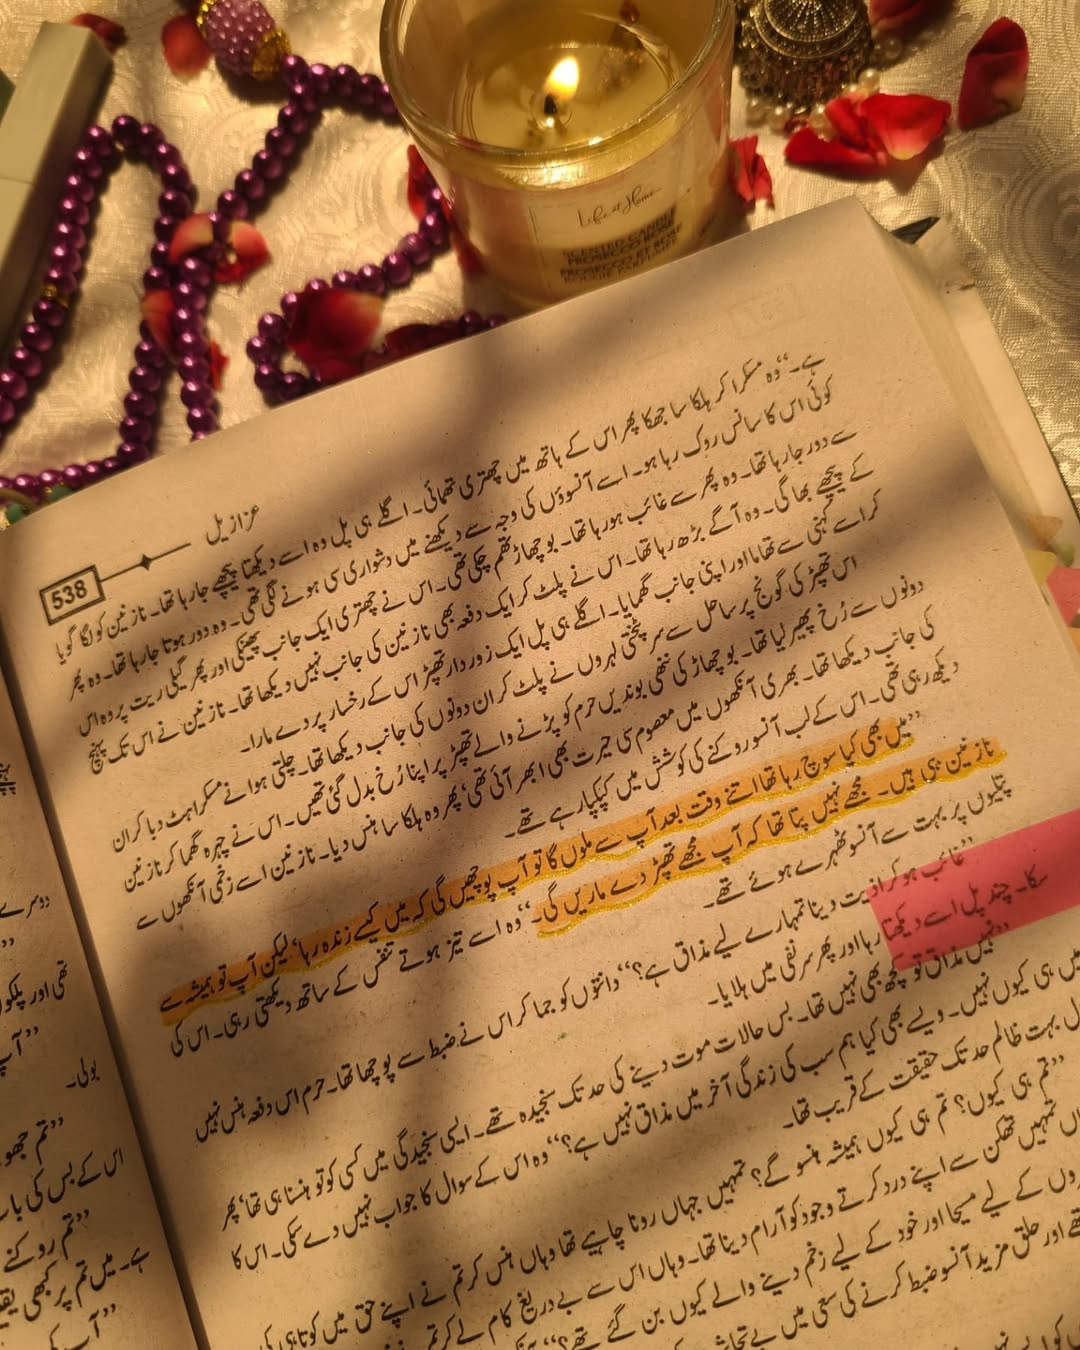 Life at Home
SCENTED CANDLE
PROSECCO ROSE
538
عزازیل
ہے۔“وہ مسکرا کر ہلکا سا جھکا پھر اس کے ہاتھ میں چھتری تھمائی۔ اگلے ہی پل وہ اسے دیکھتا پیچھے جا رہا تھا۔ نازنین کو لگا گویا
کوئی اس کا سانس روک رہا ہو۔ اسے آنسوؤں کی وجہ سے دیکھنے میں دشواری سی ہونے لگی تھی۔ وہ دور ہوتا جا رہا تھا۔ وہ پھر
سے دور جا رہا تھا۔ وہ پھر سے غائب ہو رہا تھا۔ بوچھاڑ تھم چکی تھی۔ اس نے چھتری ایک جانب پھینکی اور پھر گیلی ریت پر وہ اس
کے پیچھے بھاگی۔ وہ آگے بڑھ رہا تھا۔ اس نے پلٹ کر ایک دفعہ بھی نازنین کی جانب نہیں دیکھا تھا۔ نازنین نے اس تک پہنچ
کر اسے کہنی سے تھاما اور اپنی جانب گھمایا۔ اگلے ہی پل ایک زوردار تھپڑ اس کے رخسار پر دے مارا۔
اس تھپڑ کی گونج پر ساحل سے سر پٹختی لہروں نے پلٹ کر ان دونوں کی جانب دیکھا تھا۔ چلتی ہوا نے مسکراہٹ دبا کر ان
دونوں سے رُخ پھیر لیا تھا۔ بوچھاڑ کی ننھی بوندیں حرم کو پڑنے والے تھپڑ پر اپنا رُخ بدل گئی تھیں۔ اس نے چہرہ گھما کر نازنین
کی جانب دیکھا تھا۔ بھری آنکھوں میں معصوم سی حیرت بھی ابھر آئی تھی‘ پھر وہ ہلکا سا ہنس دیا۔ نازنین اسے زخمی آنکھوں سے
دیکھ رہی تھی۔ اس کے لب آنسو روکنے کی کوشش میں کپکپا رہے تھے۔
”میں بھی کیا سوچ رہا تھا اتنے وقت بعد آپ سے ملوں گا تو آپ پوچھیں گی کہ میں کیسے زندہ رہا‘ لیکن آپ تو ہمیشہ سے
نازنین ہی ہیں۔ مجھے نہیں پتا تھا کہ آپ مجھے تھپڑ دے ماریں گی۔“وہ اسے تیز ہوتے تنفس کے ساتھ دیکھتی رہی۔ اس کی
پتلیوں پر بہت سے آنسو ٹھہرے ہوئے تھے۔
”غائب ہو کر اذیت دینا تمہارے لیے مذاق ہے؟“ دانتوں کو جما کر اس نے ضبط سے پوچھا تھا۔ حرم اس دفعہ ہنس نہیں
سکا۔ چند پل اسے دیکھتا رہا اور پھر سر نفی میں ہلایا۔
”نہیں مذاق تو کچھ بھی نہیں تھا۔ بس حالات موت دینے کی حد تک سنجیدہ تھے۔ ایسی سنجیدگی میں کسی کو تو ہنسنا ہی تھا‘ پھر
میں ہی کیوں نہیں۔ ویسے بھی کیا ہم سب کی زندگی آخر میں مذاق نہیں ہے؟“ وہ اس کے سوال کا جواب نہیں دے سکی۔ اس کا
بہت ظالم حد تک حقیقت کے قریب تھا۔
”تم ہی کیوں؟ تم ہی کیوں ہمیشہ ہنسو گے؟ تمہیں جہاں رونا چاہیے تھا وہاں ہنس کر تم نے اپنے حق میں کوتاہی کی
تمہیں تھکن سے اپنے درد کرتے وجود کو آرام دینا تھا۔ وہاں اس سے بے دریغ کام لے کر تم
کے لیے مسیحا اور خود کے لیے زخم دینے والے کیوں بن گئے تھے؟“
اور حلق مزید آنسو ضبط کرنے کی سعی میں بے تحاشا
دوسرے
تھی اور پلکوں
”آپ
بولی۔
”تم جھو
اس کے بس کی بات
”تم روکنے
ہے۔ میں تم پر کبھی یقین
”آپ کی